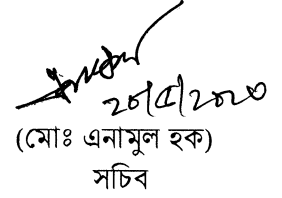 ২০/৫/২০২৩
(মোঃ এনামুল হক)
সচিব